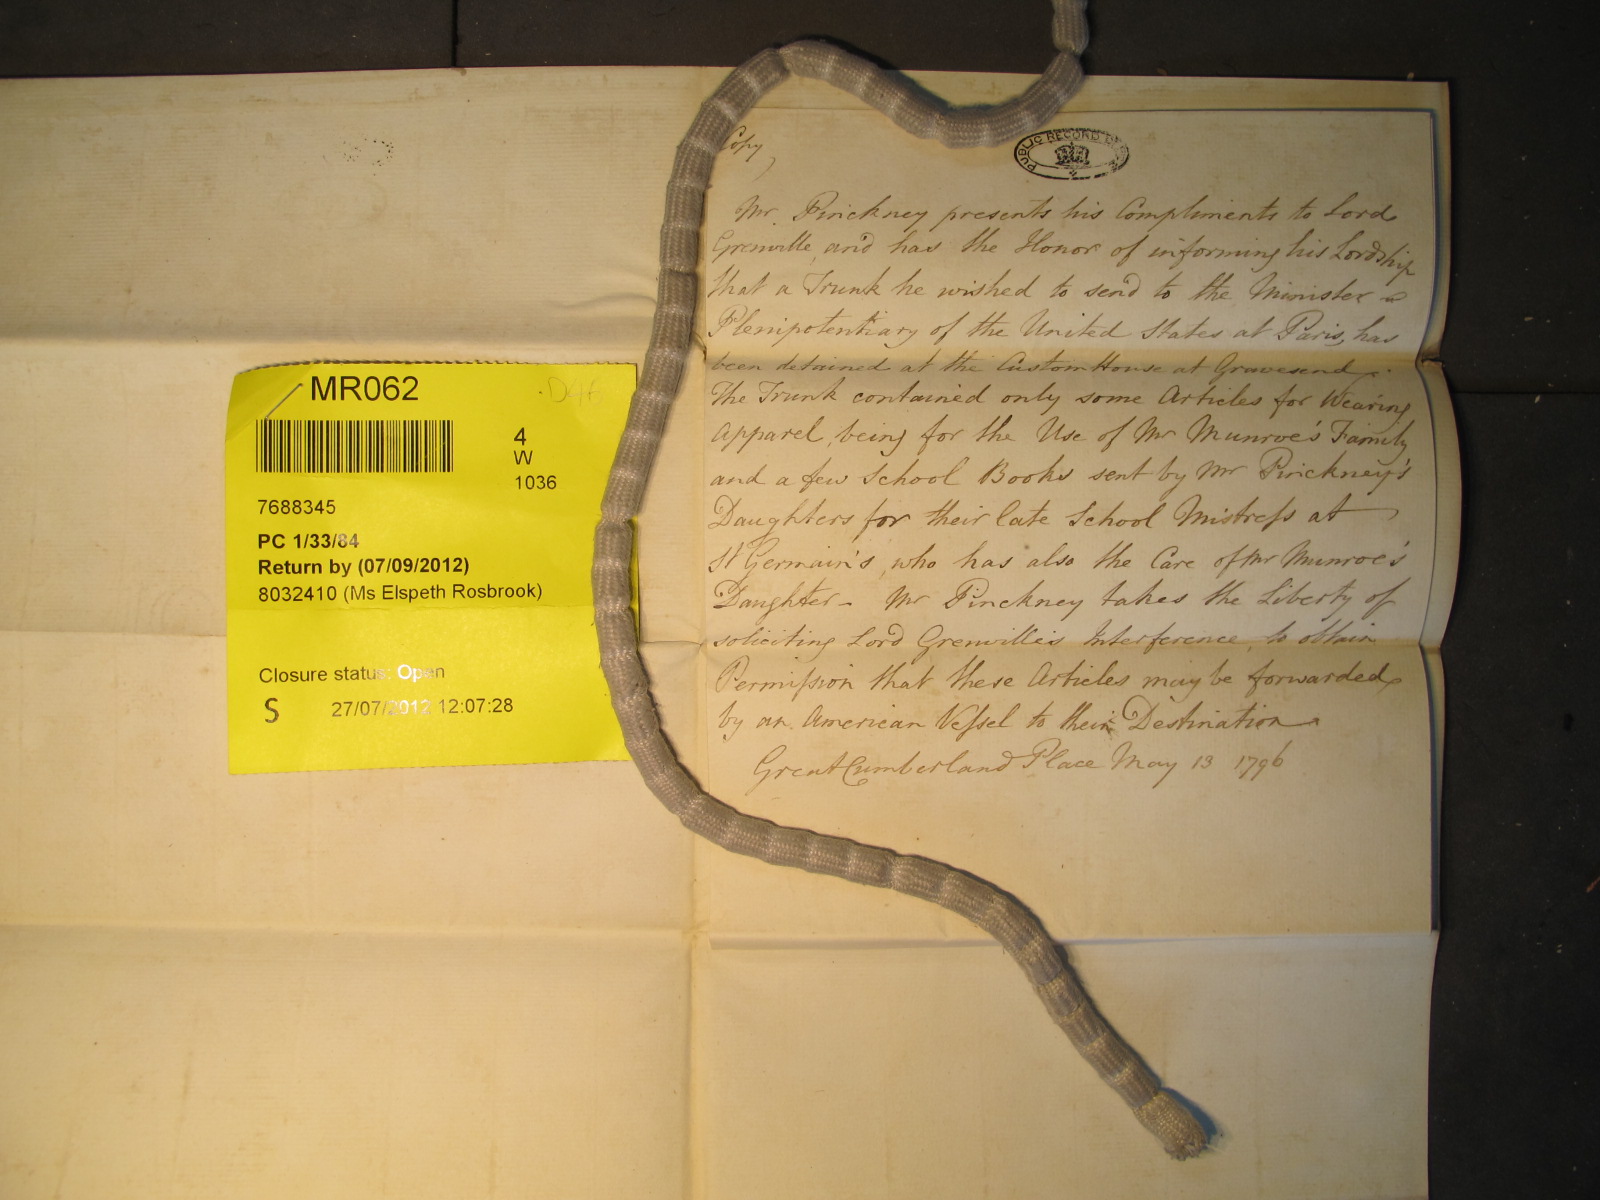 Copy
PUBLIC RECORD
Mr. Pinckney presents his Compliments to Lord
Grenville, and has the Honor of informing his Lordship
that a Trunk he wished to send to the Minister
Plenipotentiary of the United States at Paris, has
been detained at the Custom House at Gravesend.
The Trunk contained only some Articles for Wearing
Apparel, being for the Use of Mr Munroe's Family
and a few School Books sent by Mr Pinckney's
Daughters for their late School Mistress at
St Germain's, who has also the Care of Mr Munroe's
Daughter - Mr Pinckney takes the Liberty of
soliciting Lord Grenville's Interference, to obtain
Permission that these Articles may be forwarded
by an American Vessel to their Destination
Great Cumberland Place May 13 1796
MR062
4
W
1036
7688345
PC 1/33/84
Return by (07/09/2012)
8032410 (Ms Elspeth Rosbrook)
Closure status: Open
S 27/07/2012 12:07:28